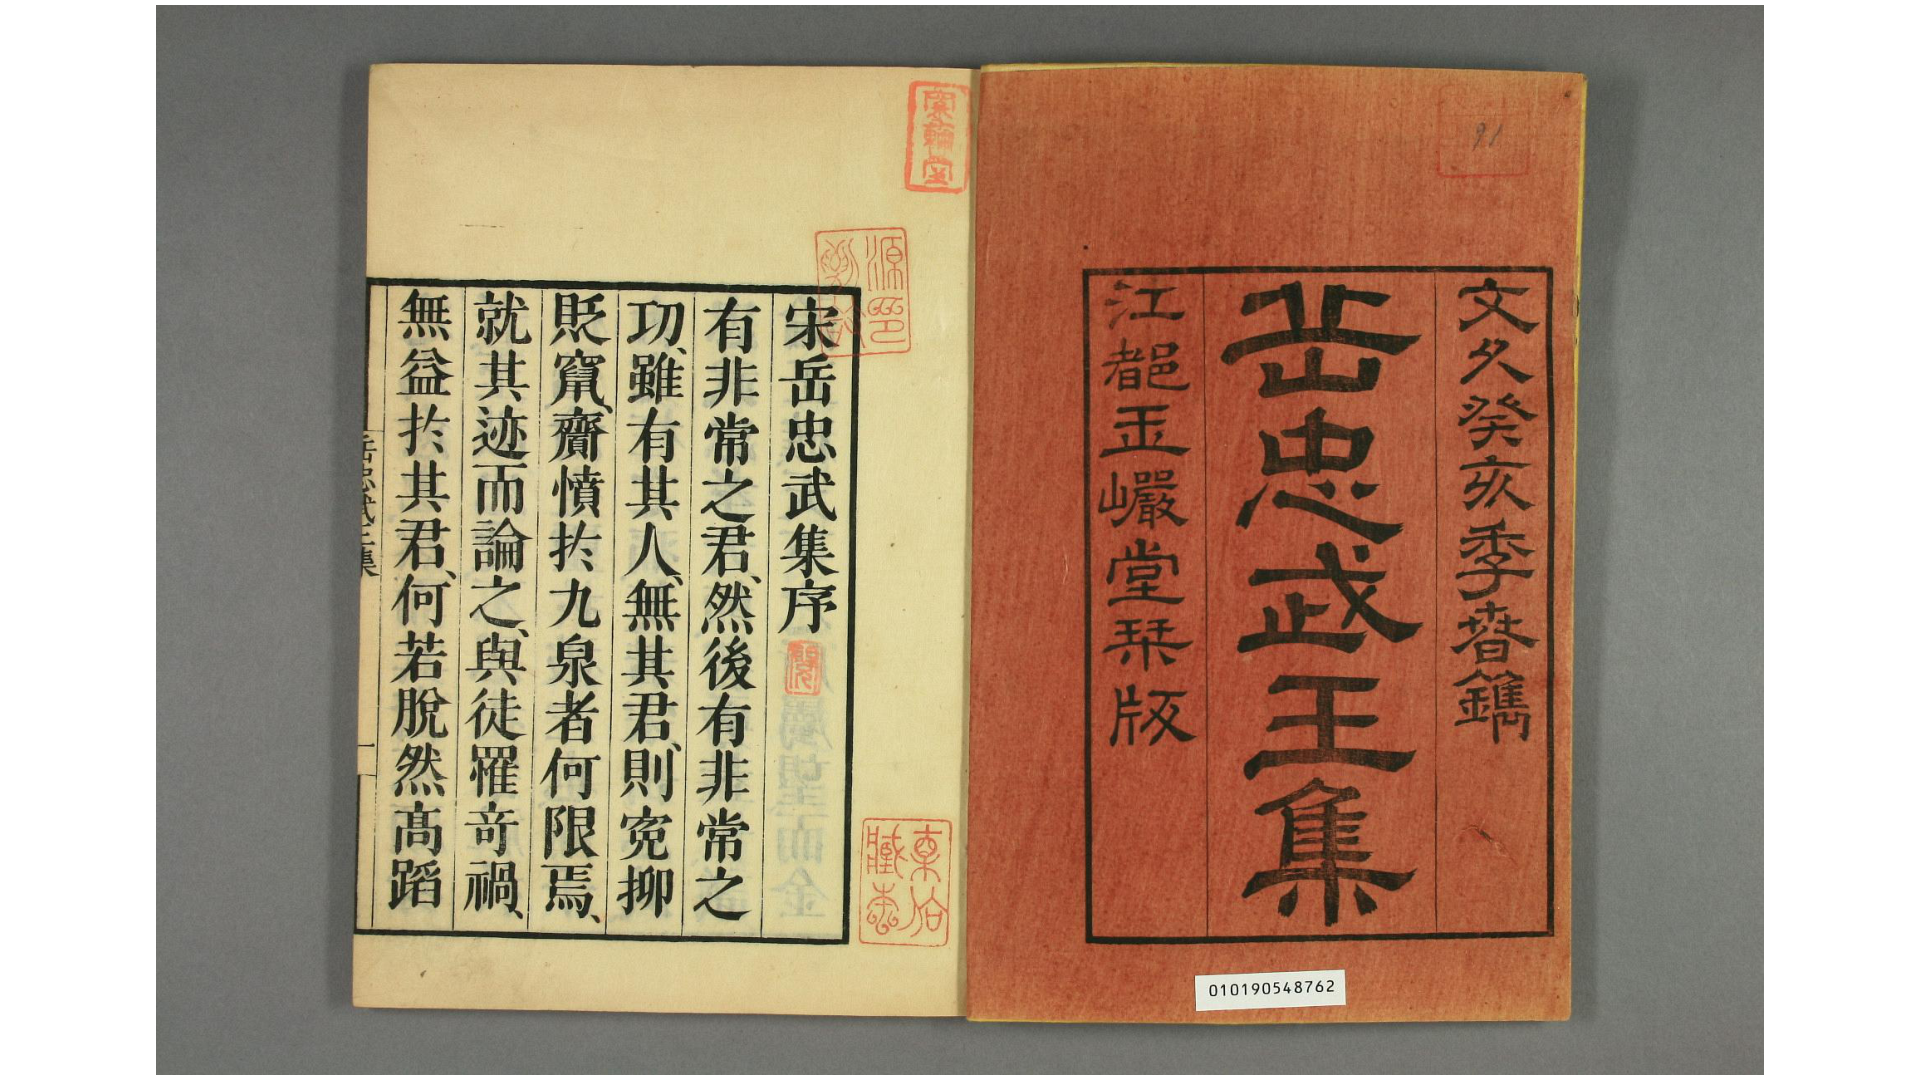 文久癸亥季春鐫
岳忠武王集
江都玉巖堂栞版
91
010190548762
宋岳忠武集序
有非常之君、然後有非常之
功、雖有其人、無其君、則寃抑
貶竄、齎憤於九泉者何限焉、
就其迹而論之、與徒罹奇禍、
無益於其君、何若脫然高蹈
岳忠武王集
一